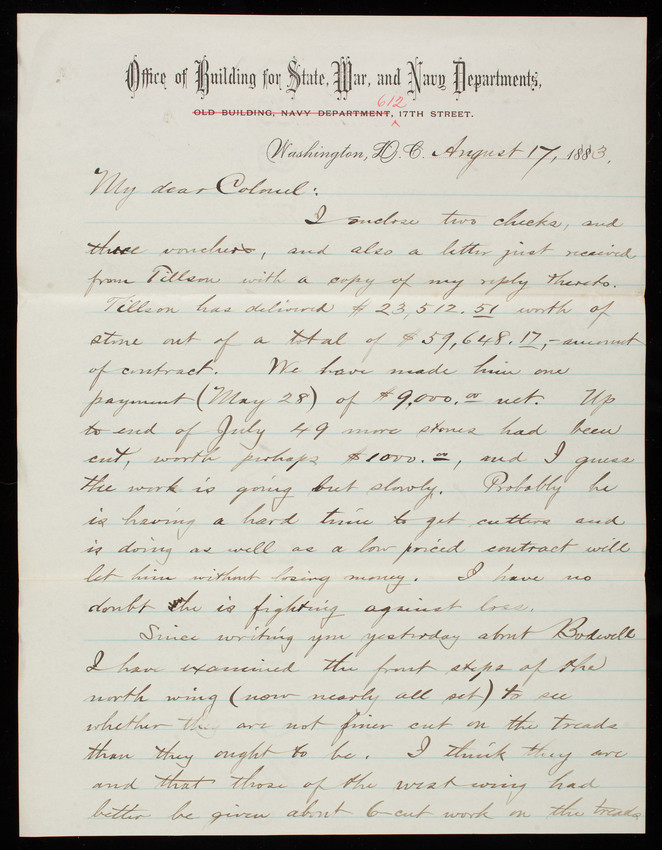 Office of Building for State, War, and Navy Departments,
612
OLD BUILDING, NAVY DEPARTMENT, 17TH STREET.
Washington, D.C. August 17, 1883.
My dear Colonel:
I enclose two checks, and
three vouchers, and also a letter just received
from Tillson with a copy of my reply thereto.
Tillson has delivered $23,512.51 worth of
stone out of a total of $59,648.17,- amount
of contract. We have made him one
payment (May 28) of $9,000.00 net. Up
to end of July 49 more stones had been
cut, worth perhaps $1000.00, and I guess
the work is going but slowly. Probably he
is having a hard time to get cutters and
is doing as well as a low priced contract will
let him without losing money. I have no
doubt he is fighting against loss.
Since writing you yesterday about Bodwell
I have examined the front steps of the
north wing (now nearly all set) to see
whether they are not finer cut on the treads
than they ought to be. I think they are
and that those of the west wing had
better be given about 6-cut work on the treads